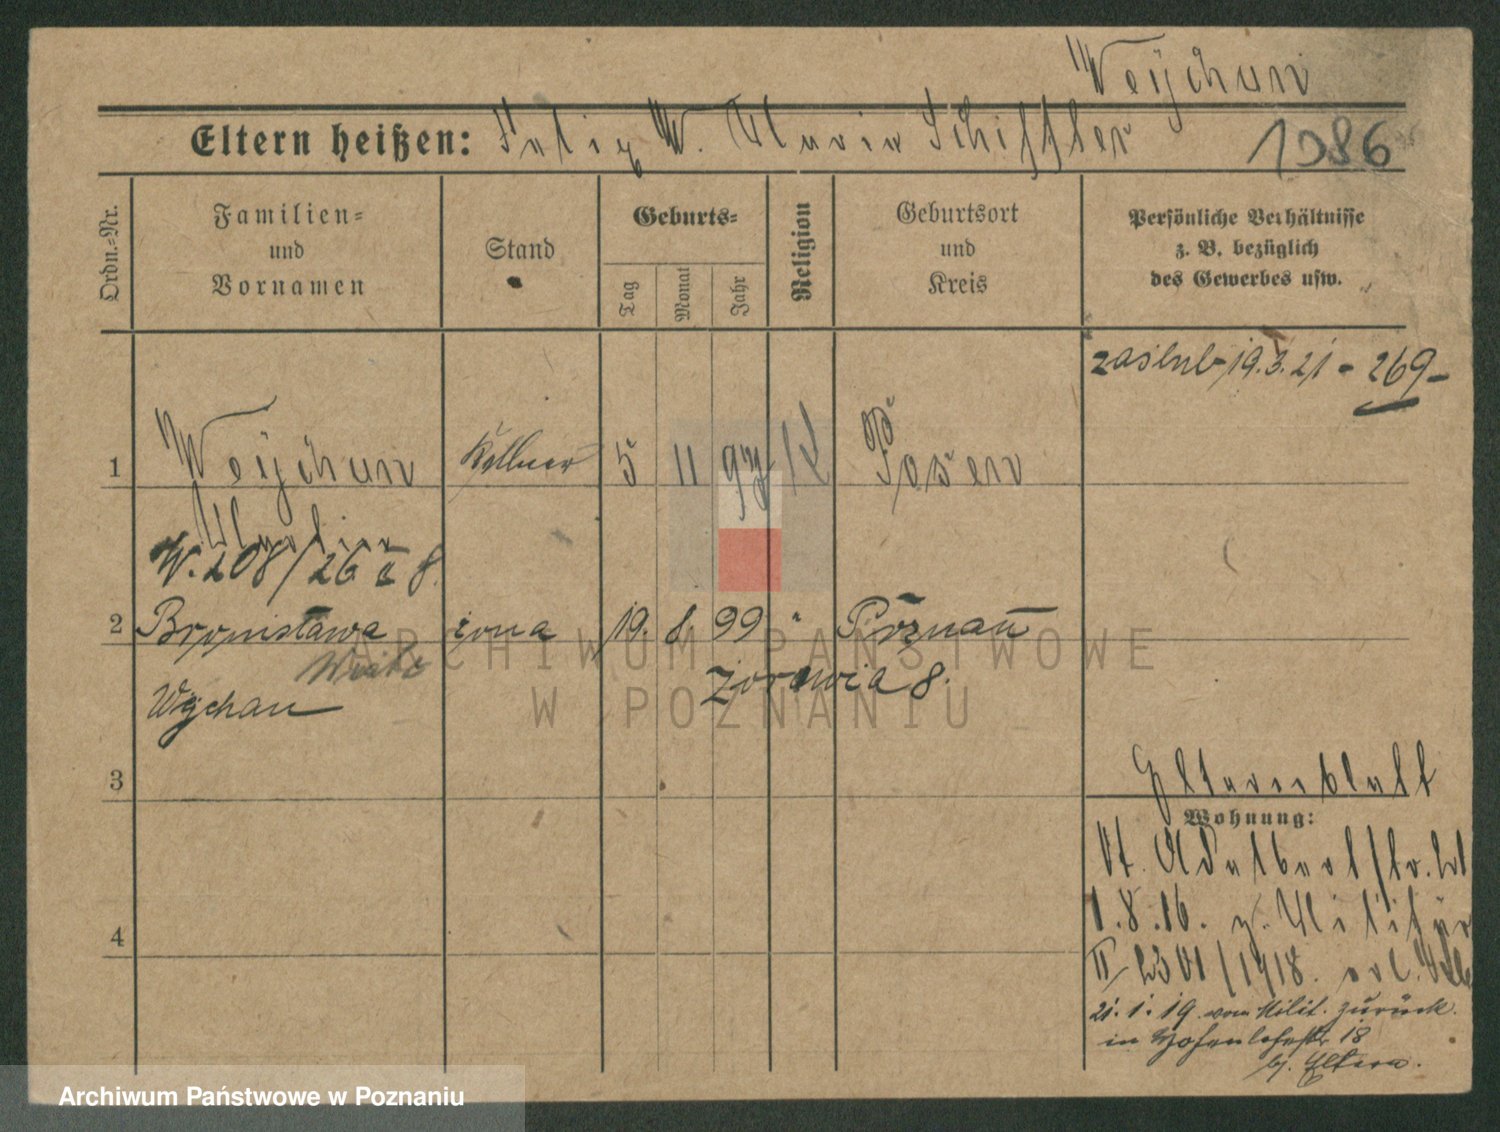 Weÿchan
Eltern heißen: Felix W. Maria Schiffler
1086
Ordn.=Nr.
Familien=
und
Vornamen
Stand
Geburts=
Tag
Monat
Jahr
Religion
Geburtsort
und
Kreis
Persönliche Verhältnisse
z. B. bezüglich
des Gewerbes usw.
zaślub 19.3.21 - 269 -
1 Weÿchan Kellner 5 11 97 K Posen
W. 208/26 8
2 Bronisława żona 19. 8 99 " Poznań
Żórawia 8.
Wÿchan
3
Elternblatt
Wohnung:
St. Adalbertstr.
1.8.16. z. Militär
4
II 23 VI/1918.
21.1.19. vom Milit. zurück.
in Hohenlohestr 18
bj. Eltern.
ARCHIWUM PAŃSTWOWE
W POZNANIU
Archiwum Państwowe w Poznaniu